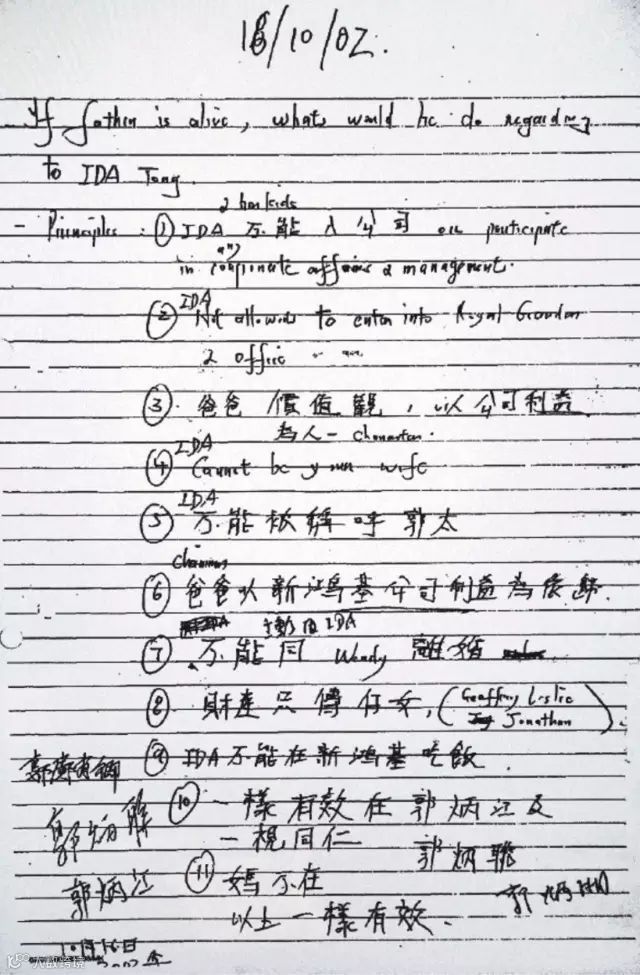 18/10/02.
If father is alive, what would he do regarding
to IDA Tong.
2 her kids
- Principles : ① IDA 不能入公司 or participate
any
in corporate affairs & management.
IDA
② Not allowed to enter into Royal Garden
2 office
③ 爸爸價值觀，以公司利益
為人 - character.
IDA
④ Cannot be your wife
IDA
⑤ 不能被稱呼郭太
chairman
⑥ 爸爸以新鴻基公司利益為依歸.
IDA
⑦ 不能同 Wendy 離婚
⑧ 財產只傳仔女, (Geoffrey Leslie
Jonathan).
⑨ IDA不能在新鴻基吃飯.
⑩ 一樣有效在郭炳江及
郭炳聯
一視同仁
郭炳聯
⑪ 媽不在
郭炳江
郭炳湘
以上一樣有效.
10月16日
2002年
大數跨境